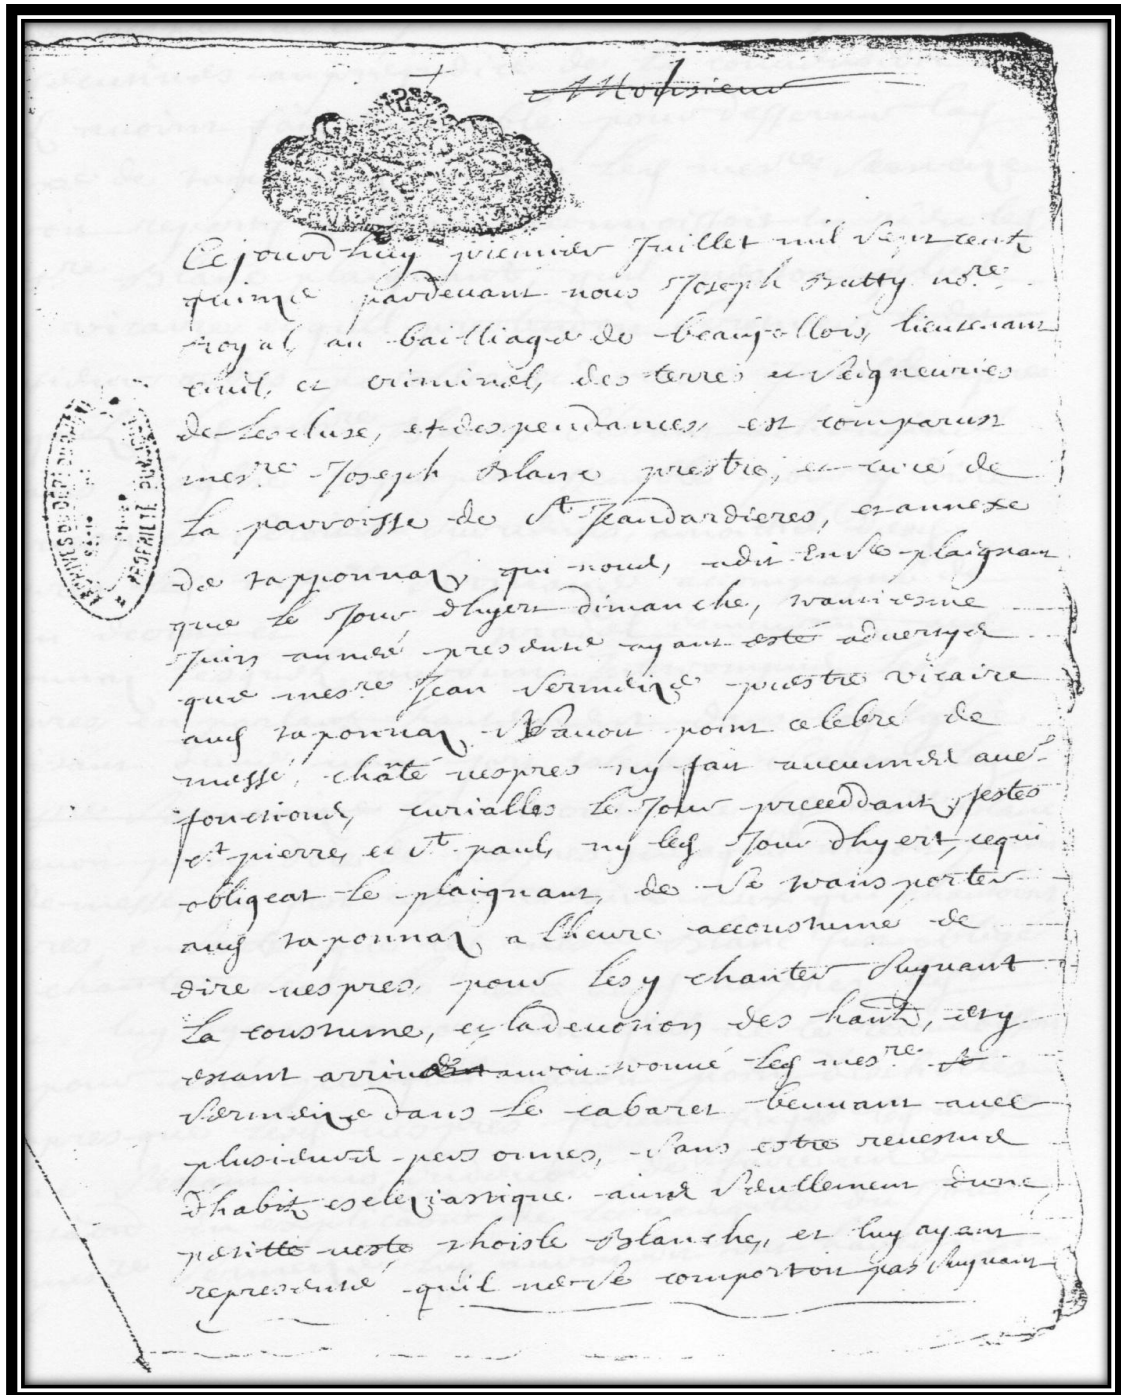 Monsieur
Cejourdhuy premier Juillet mil sept cent
quinze pardevant nous Joseph Butty no.re
royal, au bailliage de beaujollois, lieutenant
civil, et criminel, des terres et seigneuries
de Lescluse, et despendances, est comparust
mes.re Joseph Blanc prestre, et curé de
La parroisse de St Jeandardieres, et annexe
de tapponnaz, qui nous, a dit en se plaignant
que le Jour dhyert dimanche, trantiesme
Juin année presente ayant esté adverty
que mes.re Jean Sermeize prestre vicaire
aud taponnaz Navoit point celebré de
messe, chãté vespres ny fait aucunes
fonctions, curialles le Jour preceddant, festes
St pierre, et St paul, ny led Jour dhyert, cequi
obligeat le plaignant, de se transporter
aud taponnaz, a lheure accoustumé de
dire vespres, pour lesy chanter suyvant
La coustume, et ladevotion des hants, et y
estant arrivé auroit trouvé led mes.re
Sermeize dans le cabaret beuvant avec
plusieurs personnes, sans estre revestu
dhabitz eseleziastique ains seullement dune
petitte veste thoisle Blanche, et luy ayant
representé quil ne se comportoit pas suyvant
ARCHIVES DEPARTEMENTALES
PROPRIETE PUBLIQUE